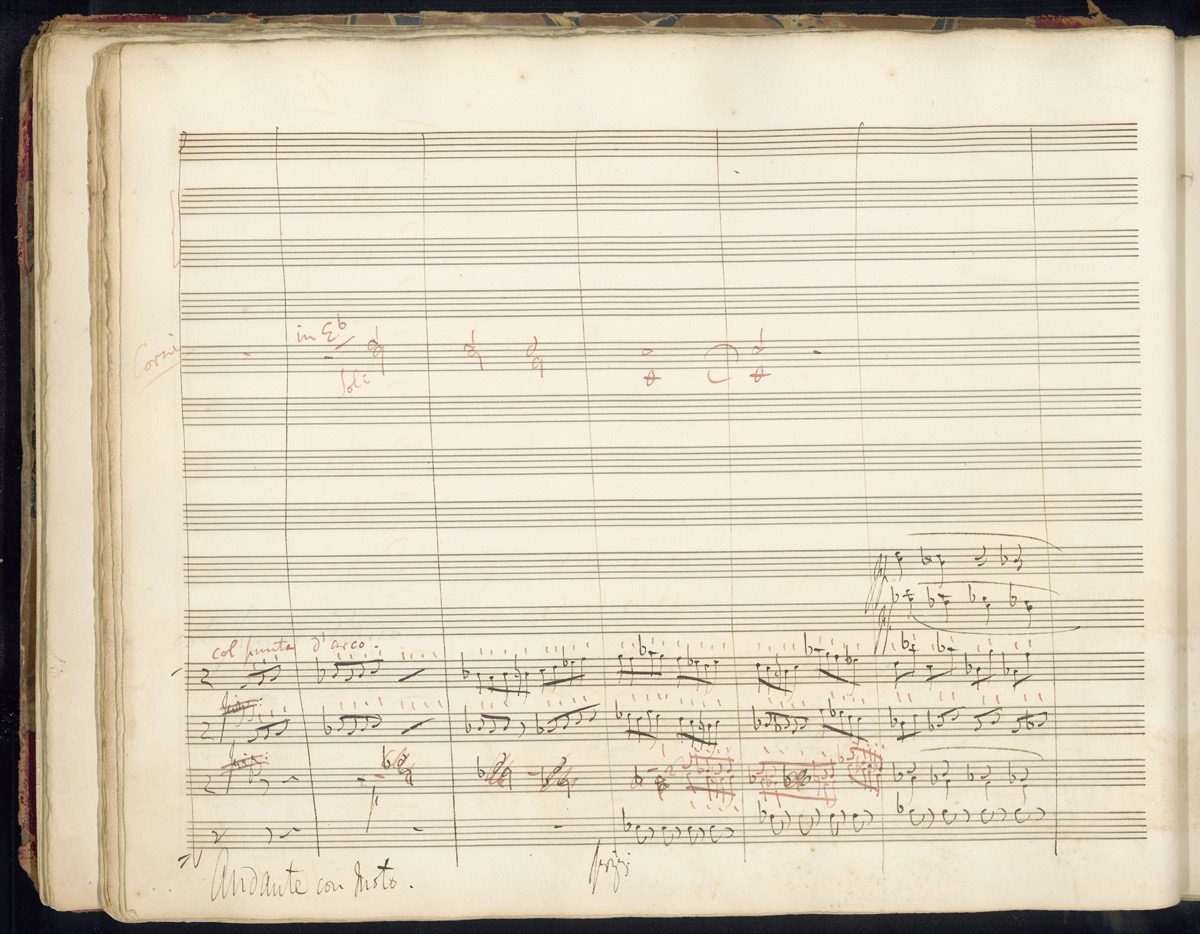 in E♭
Corni
Soli
col punta d'arco.
Andante con moto.